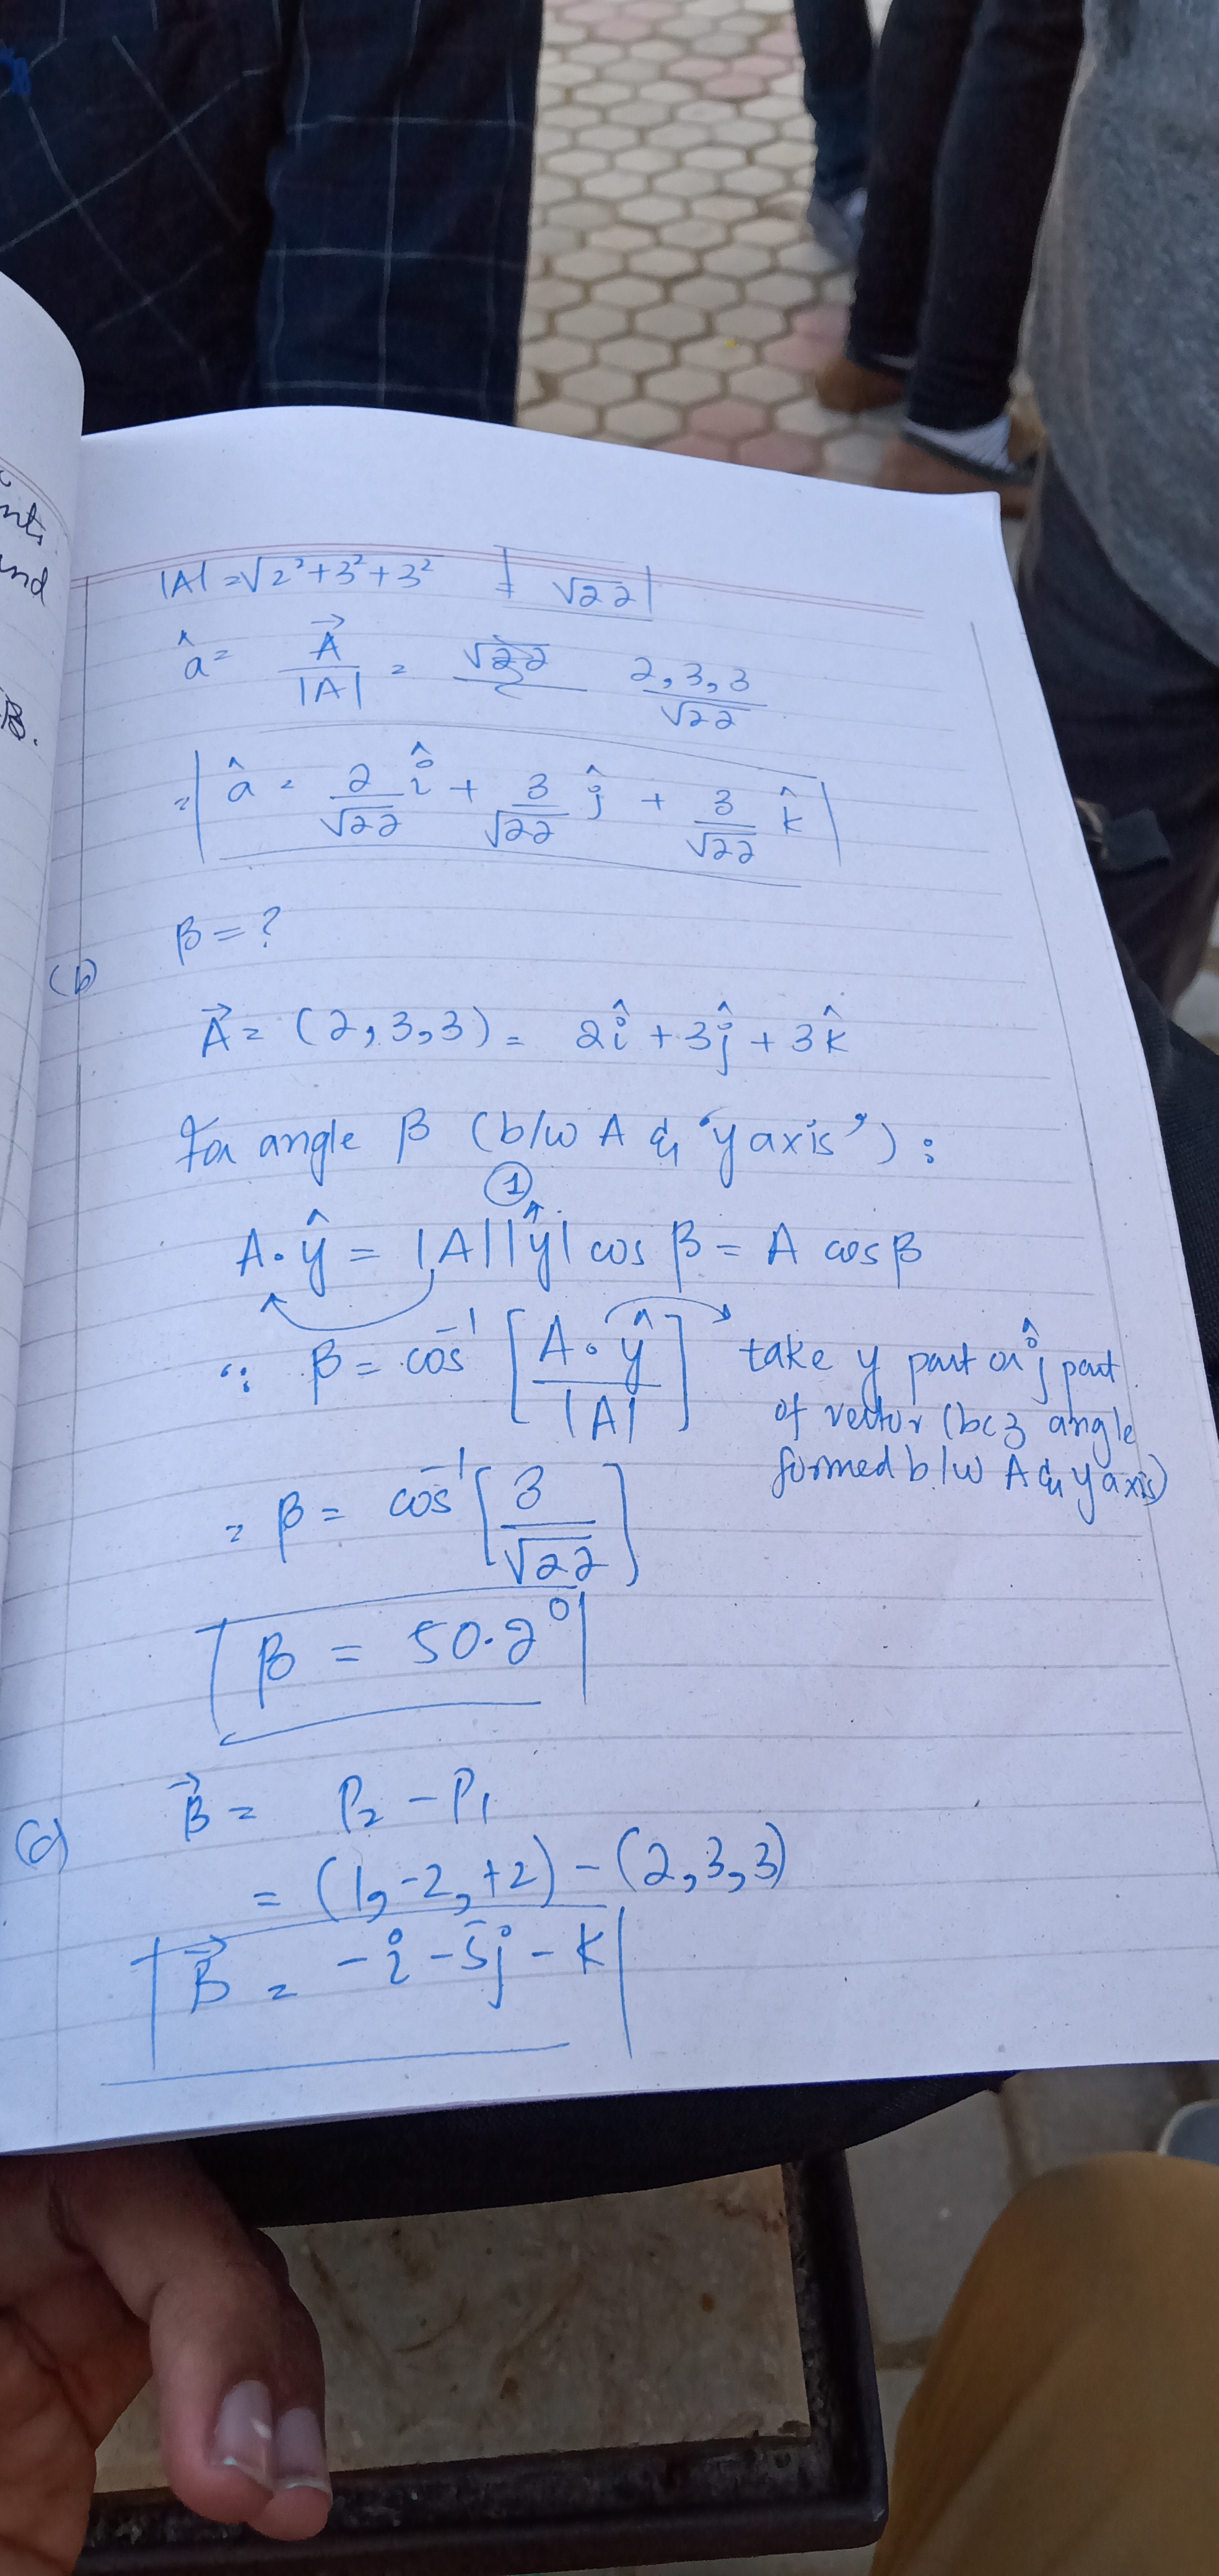 nts
and
B.
|A| = √2²+3²+3² = √22
â = A⃗ / |A| = 2,3,3 / √22
= â = 2/√22 î + 3/√22 ĵ + 3/√22 k̂
β = ?
(b)
A⃗ = (2,3,3) = 2î + 3ĵ + 3k̂
For angle β (b/w A & 'y axis') :
①
A·ŷ = |A||ŷ| cos β = A cos β
∴ β = cos⁻¹ [A·ŷ / |A|] take y part or ĵ part
of vector (bcz angle
formed b/w A & y axis)
= β = cos⁻¹ [3/√22]
β = 50.2°
(c) B⃗ = P₂ - P₁
= (1,-2,+2) - (2,3,3)
B⃗ = -i - 5j - k